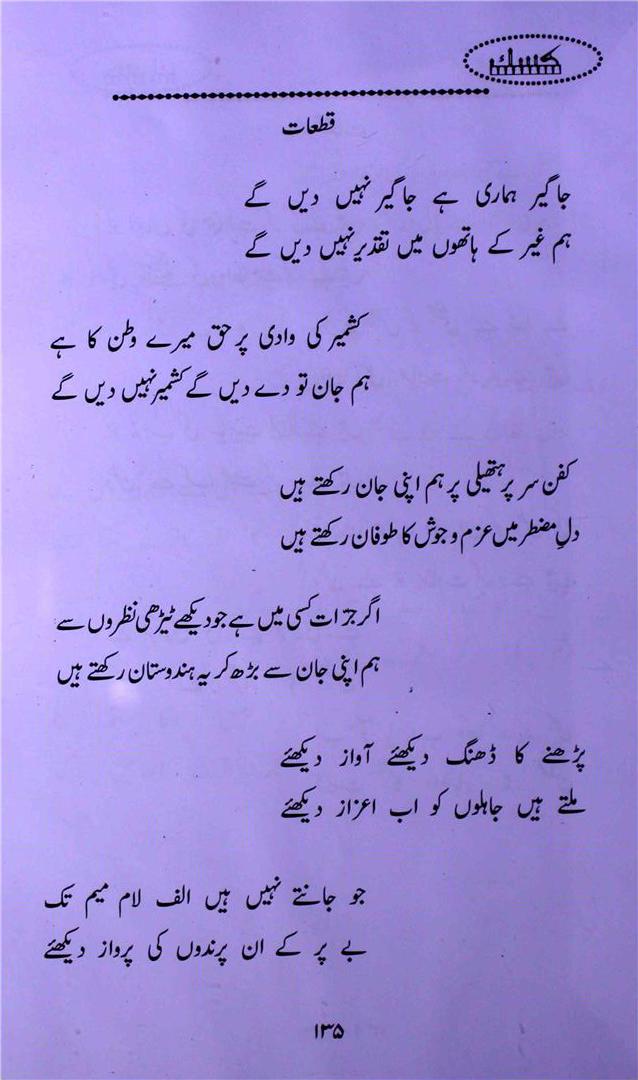 کسک
قطعات
جاگیر ہماری ہے جاگیر نہیں دیں گے
ہم غیر کے ہاتھوں میں تقدیر نہیں دیں گے
کشمیر کی وادی پر حق میرے وطن کا ہے
ہم جان تو دے دیں گے کشمیر نہیں دیں گے
کفن سر پر ہتھیلی پر ہم اپنی جان رکھتے ہیں
دلِ مضطر میں عزم و جوش کا طوفان رکھتے ہیں
اگر جرّات کسی میں ہے جو دیکھے ٹیڑھی نظروں سے
ہم اپنی جان سے بڑھ کر یہ ہندوستان رکھتے ہیں
پڑھنے کا ڈھنگ دیکھئے آواز دیکھئے
ملتے ہیں جاہلوں کو اب اعزاز دیکھئے
جو جانتے نہیں ہیں الف لام میم تک
بے پر کے ان پرندوں کی پرواز دیکھئے
۱۳۵